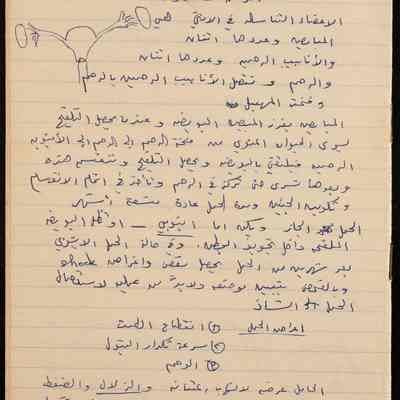 الاعضاء التناسلية في الانثى هي
المبايض وعددها اثنان
والأنابيب الرحمية وعددها اثنان
والرحم وتتصل الأنابيب الرحمية بالرحم
وفتحة المهبل
المبايض يفرز المبيض البويضة وعندما يحصل التلقيح
يسري الحيوان المنوي من فتحة الرحم الى الرحم الى الأنبوبة
الرحمية فيلتقي بالبويضة ويحصل التلقيح وتنقسم هذه
وبعدها تسري حتى تتركز في الرحم وتأخذ في اتمام الانقسام
وتكوين الجنين ومدة الحمل عادة تسعة أشهر
الحمل الخارج ويكون اما انبوبي أو تظل البويضة
الملقحة داخل تجويف البطن. وفي حالة الحمل الانبوبي
بعد شهرين من الحمل يحصل واعراض shock
وبالفحص يتبين ولابد من عملية لاستئصال
الحمل الشاذ
اعراض الحمل ① انقطاع الطمث
② سرعة تكرار التبول
③ الوحم
الحامل عرضة والزلال والضغط